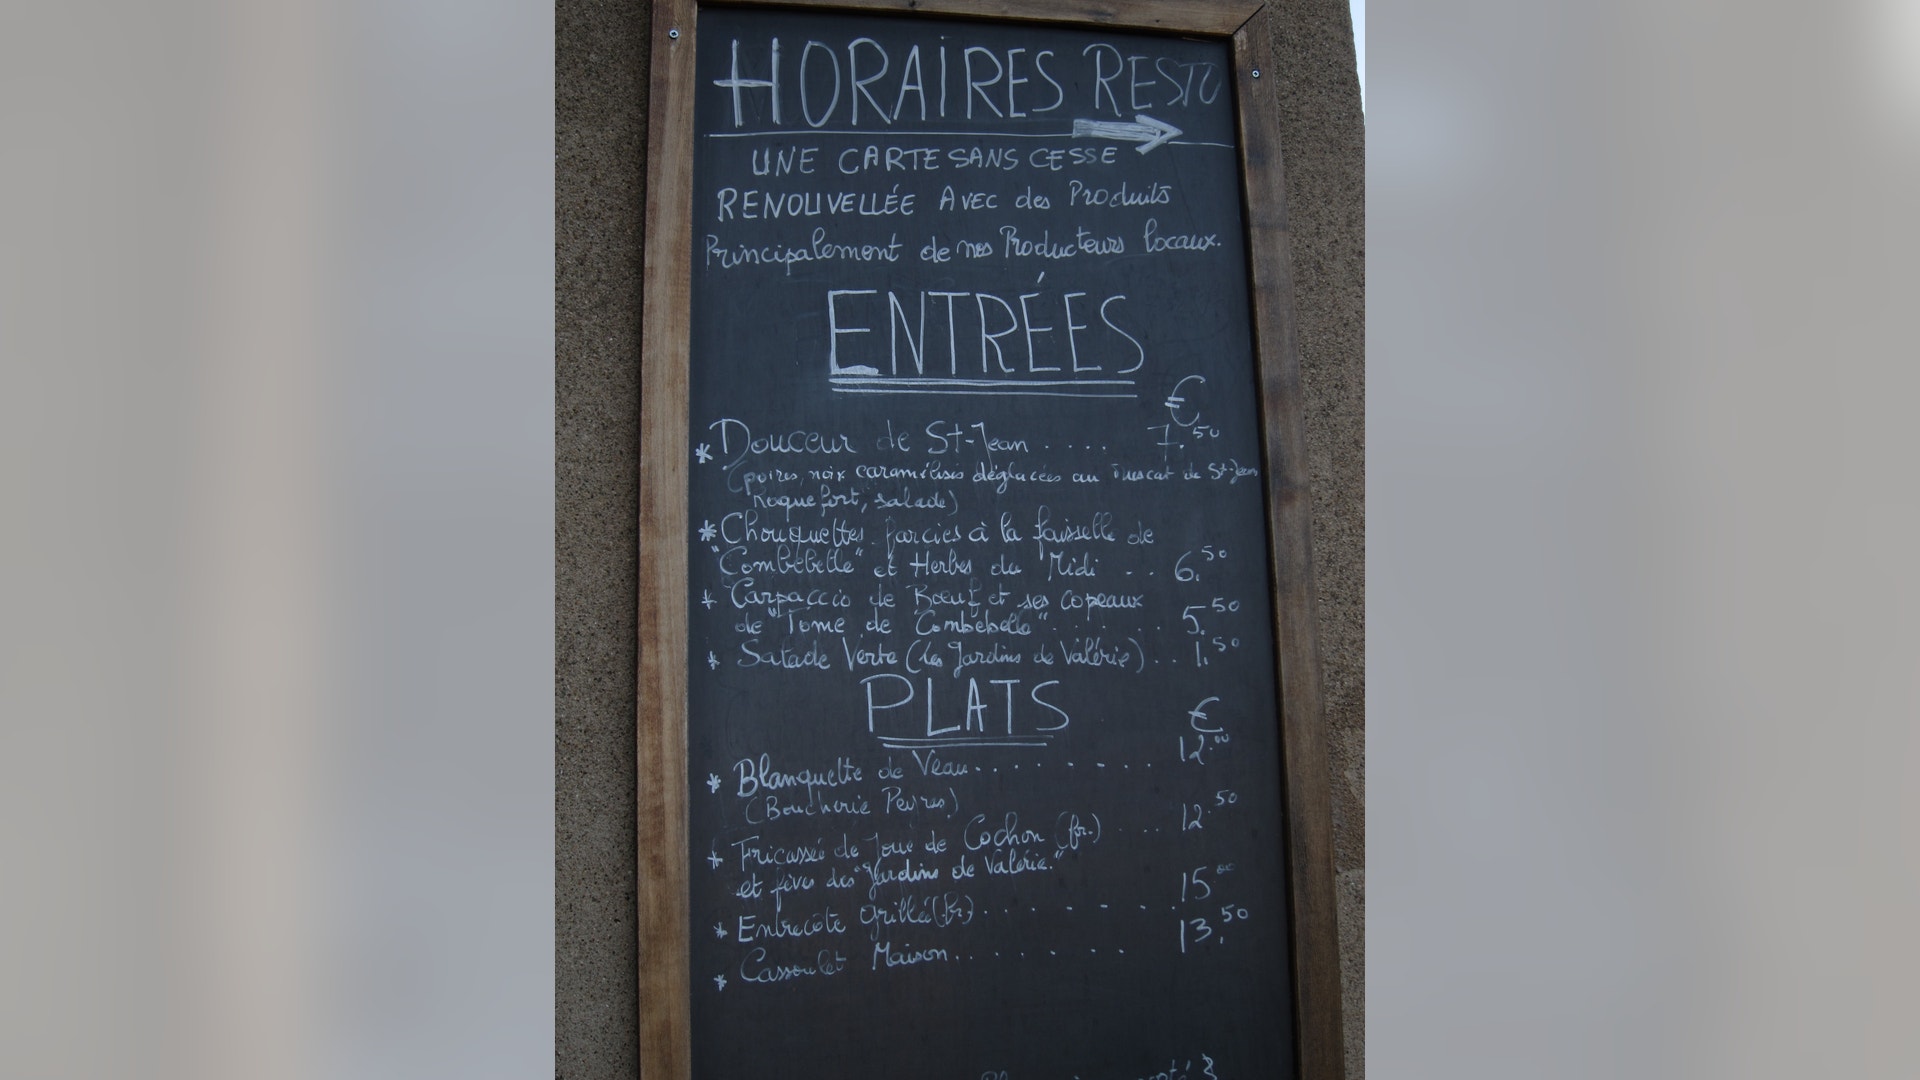 HORAIRES RESTO
UNE CARTE SANS CESSE
RENOUVELLÉE AVEC des Produits
Principalement de nos Producteurs locaux.
ENTRÉES
€
* Douceur de St-Jean .... 7.50
(poires, noix caramélisés déglacées au Muscat de St-Jean
Roquefort, salade)
* Chouquettes farcies à la faisselle de
"Combebelle" et Herbes du Midi .. 6.50
* Carpaccio de Bœuf et ses copeaux
de "Tome de Combebelle" ..... 5.50
* Salade Verte (les Jardins de Valérie) .. 1.50
PLATS
€
* Blanquette de Veau ........ 12.00
(Boucherie Peyres)
* Fricassée de Joue de Cochon (fr.) ... 12.50
et fèves des "Jardins de Valérie."
* Entrecôte grillée (fr.) ....... 15.00
* Cassoulet Maison ...... 13.50